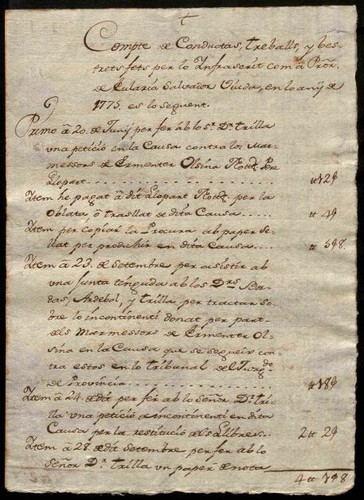 Compte de Conductas, treballs, y bes-
trets fets per lo Infraescrit com á Pror.
de Eularia Salvador Viuda, en lo any de
1775. es lo seguent.
Primo á 20. de Juny per fer ab lo Sr. Dr. Trilla
una petició en la Causa contra los Mar-
messors de Ermenter Olsina Nott. Pre
Llopart
Item he pagat á dit Llopart Nott. per la
Oblata, ó trasllat de dita Causa
Item per copiar la Procura ab paper Se-
llat per produhir en dita Causa
Item á 23. de Setembre per asistir ab
una Junta tinguda ab los Drs.
Ardebol, y Trilla, per tractar so-
bre lo incontinenti donat per part
dels Marmessors de Ermenter Ol-
sina en la Causa que se segueix con-
tra estos en lo tribunal del
de Provincia
Item á 24. de dit per fer ab lo Señor Dr. Tri-
lla una petició de incontinenti en dita
Causa per la restitució dels Llibres
Item á 27. de dit Setembre per fer ab lo
Señor Dr. Trilla un paper de nota